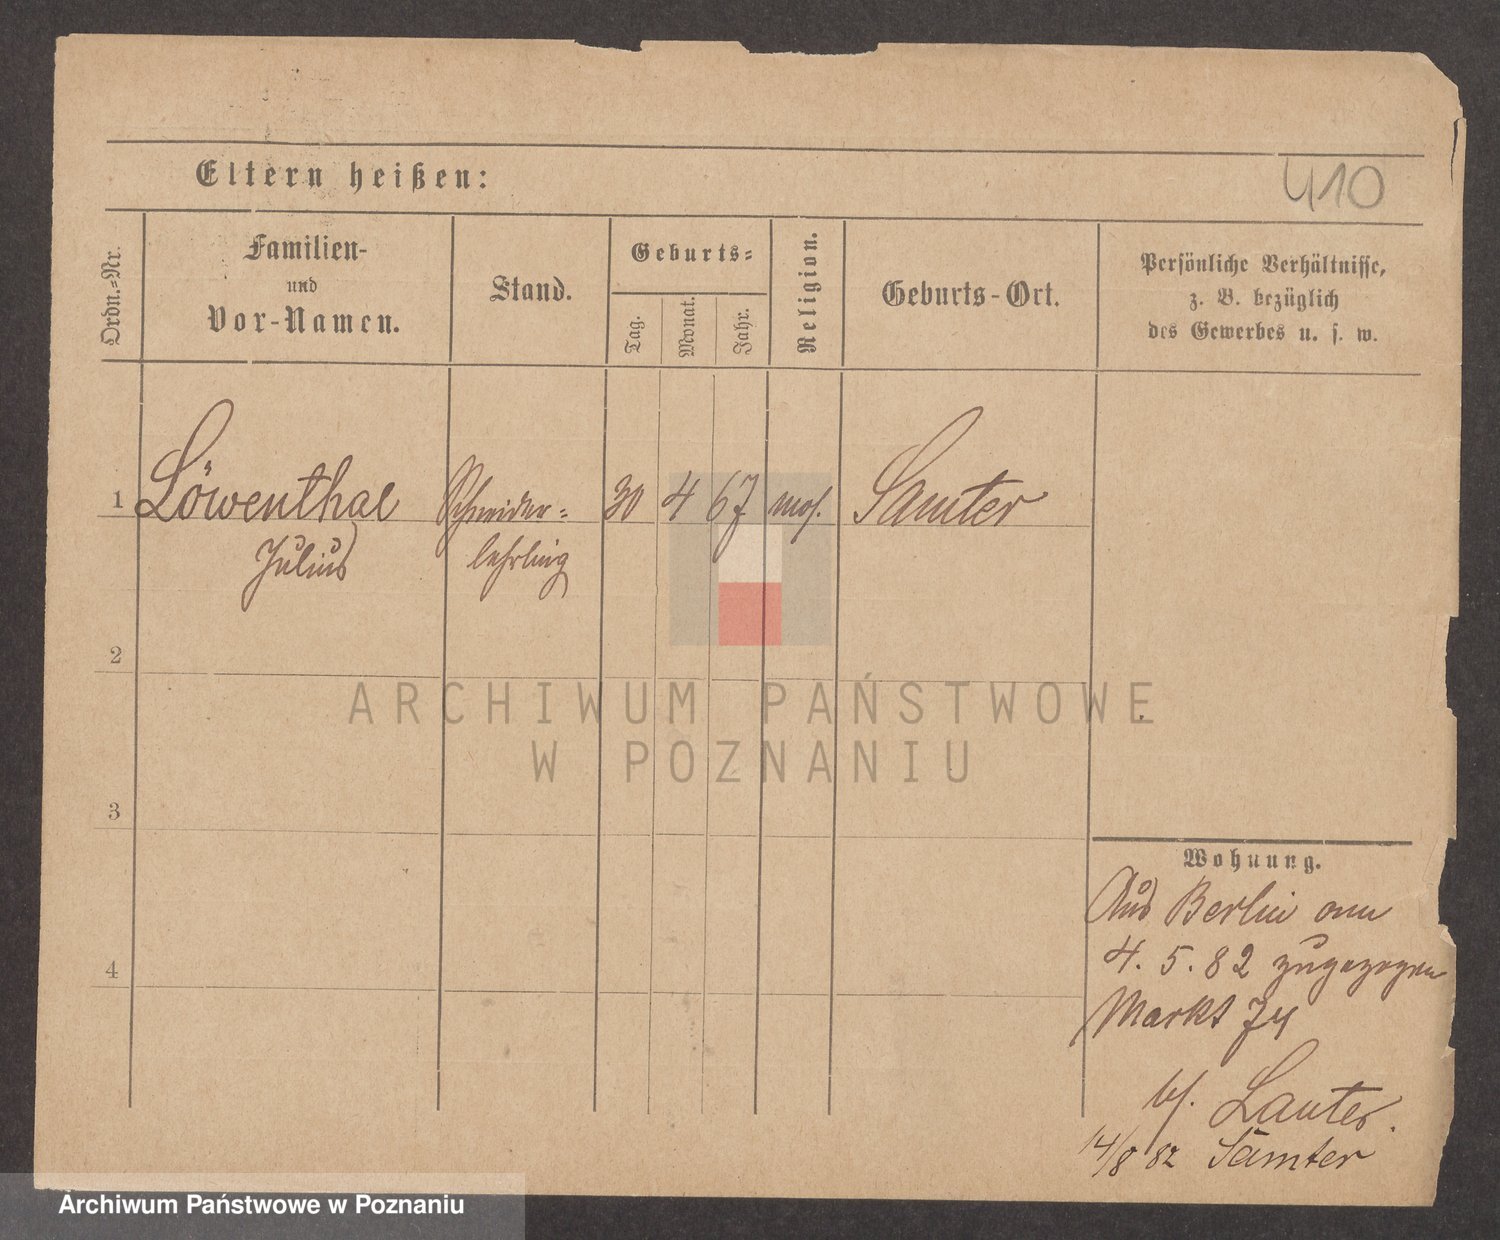 410
Eltern heißen:
Ordn.-Nr.
Familien-
und
Vor-Namen.
Stand.
Geburts-
Tag.
Monat.
Jahr.
Religion.
Geburts-Ort.
Persönliche Verhältnisse,
z. B. bezüglich
des Gewerbes u. s. w.
1 Löwenthal Schneider- 30 4 67 mos. Samter
Julius lehrling
2
ARCHIWUM PAŃSTWOWE
W POZNANIU
3
4
Wohnung.
Aus Berlin am
4. 5. 82 zugezogen
Markt 74
bs. Lauter.
14/8 82 Samter
Archiwum Państwowe w Poznaniu